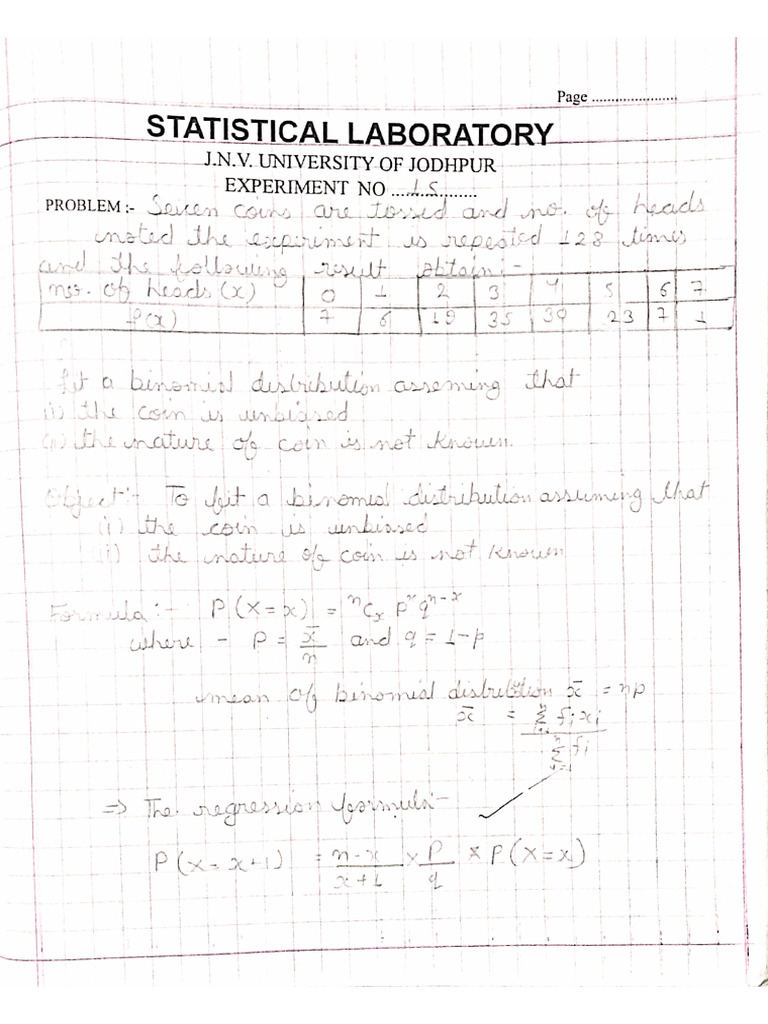 Page ......................
STATISTICAL LABORATORY
J.N.V. UNIVERSITY OF JODHPUR
EXPERIMENT NO ....15.........
PROBLEM :- Seven coins are tossed and no. of heads
noted the experiment is repeated 128 times
and the following result obtain:-
no. of heads (x) 0 1 2 3 4 5 6 7
f(x) 7 6 19 35 30 23 7 1
Fit a binomial distribution asseming that
(i) the coin is unbiased
(ii) the nature of coin is not known.
Object:- To fit a binomial distribution assuming that
(i) the coin is unbiased
(ii) the nature of coin is not known
Formula :- P(X=x) = ⁿCₓ pˣ qⁿ⁻ˣ
where - P = x̄/n and q = 1-p
mean of binomial distribution x̄ = np
x̄ = Σ fᵢxᵢ / Σ fᵢ
=> The regression formula:-
P(X=x+1) = n-x/x+1 × P/q × P(X=x)